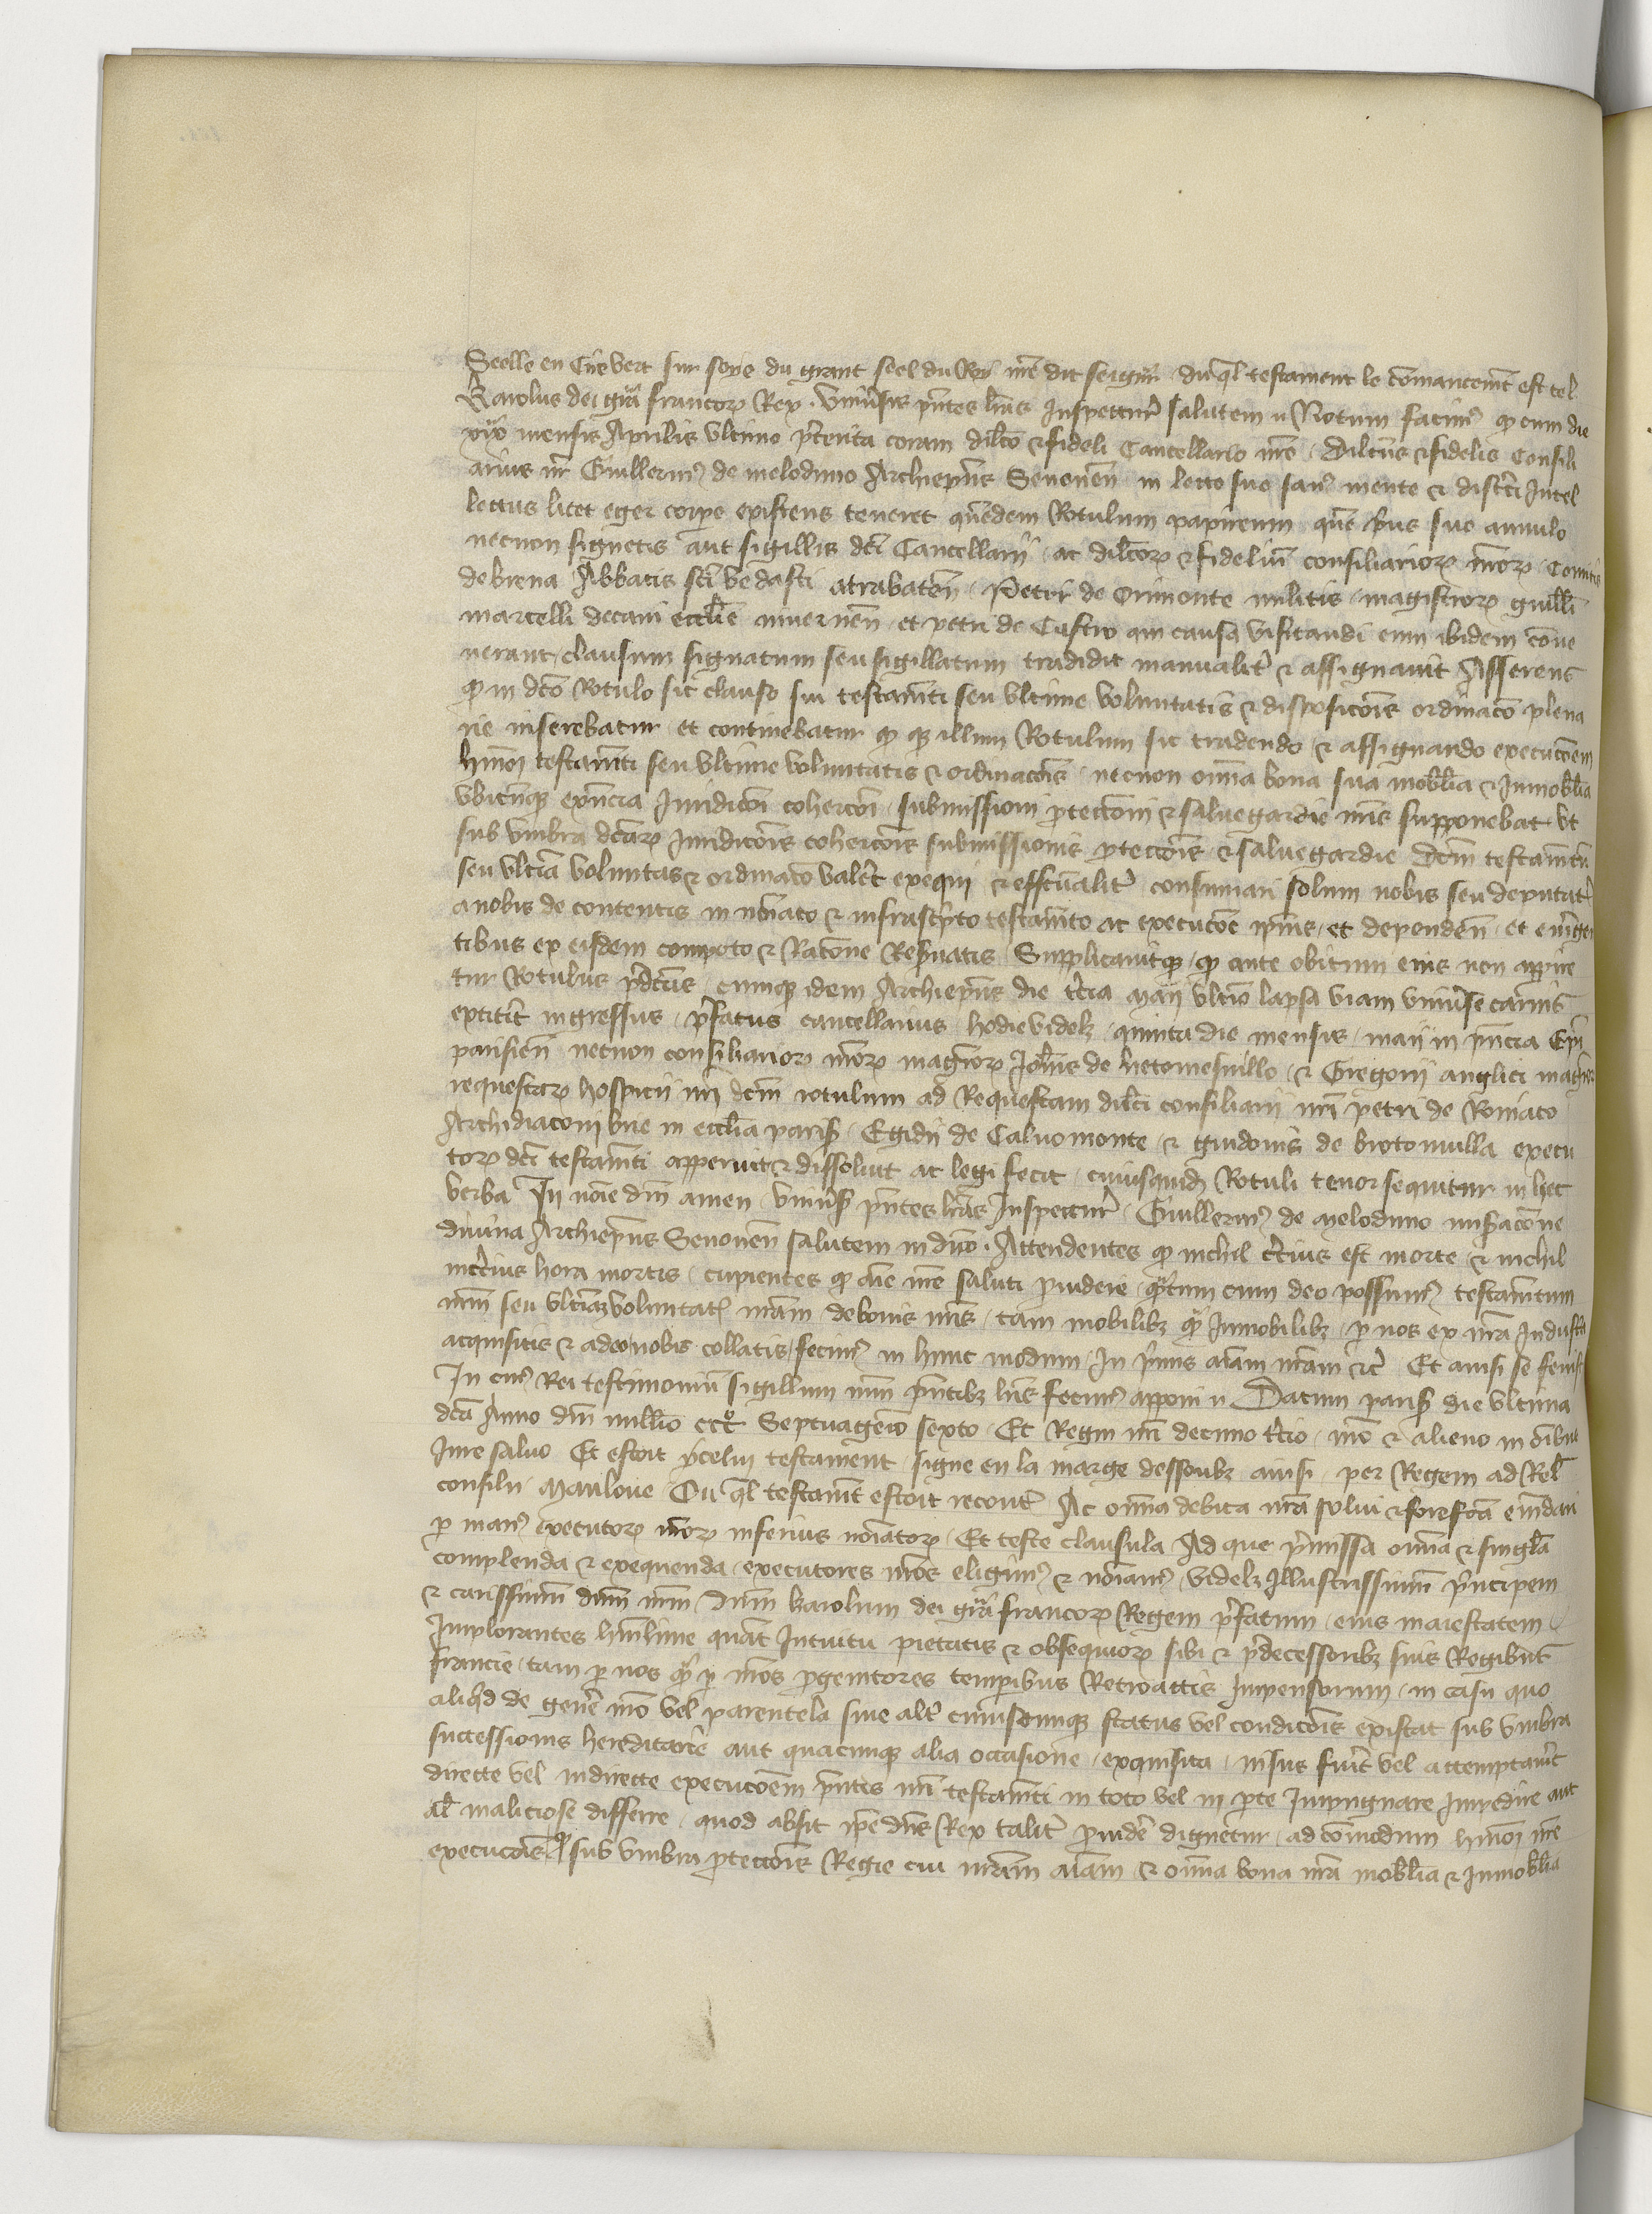 Seelle en Cire vert sur soye du grant seel du Roy nre dit seignr du ql testament le comancemt est tel
Karolus dei gra francor Rex. Univsis pntes lras Inspectur salutem Notum facim q cum die
mensis Aprilis ultimo pterita coram dilco & fideli Cancellario nro Dilcus & fidelis Consili
arius nr Guillerm de meloduno Archiepus Senonen in lecto suo san mente & discreti Intel
lectus licet eger corpe existens teneret quedem Rotulum papireum que prius suo annulo
necnon signetis aut sigillis dci Cancellarii ac dilcor & fideliu consiliarior nror Comitis
de brena Abbatis sci vedasti atrabaten Petri de Orimonte militis magistror guilli
marcelli decani ecclie nivernen et petri de Castro qui causa visitandi eum ibidem conve
nerant clausum signatum seu sigillatum tradidit manualit & assignavit Asserens
q in dco Rotulo sic clauso sui testamti seu ultime voluntatis & disposicois ordinaco plena
rie inserebatur et continebatur q q illum Rotulum sic tradendo & assignando execucoem
hmoi testamti seu ultime voluntatis & ordinacois necnon omia bona sua mobilia & Inmobilia
ubicuq exncia Juridicoi cohercoi submissioni ptectoni & salvegardie nris supponebat ut
sub umbra dcar Juridicois cohercois submissionis ptectois & salvegardie dcm testamtu
seu ultia voluntas & ordinaco valeret exequi & effectualit consumari solum nobis seu deputat
a nobis de contentis in noiato & infrascpto testamto ac execucoe ipius et dependen et emgen
tibus ex eisdem compoto & Racone Reservatis Supplicavitq q ante obitum eius non appire
tur Rotulus pdcus cumq idem Archiepus die tcia maii ultio lapsa viam univse carnis
extitit ingressus pfatus cancellarius hodie videlz quinta die mensis maii in pncia Epi
parisien necnon consiliarior nror magror Johis de hetomesnillo & Gregorii anglici magror
requestar hospicii nri dcm rotulum ad Requestam dilci consiliarii nri petri de Roniaco
Archidiaconi brie in ecclia paris Egidii de Calvomonte & guidonis de brotonulla execu
tor dci testamti apperuit & dissolvit ac legi fecit cuiusquid Rotuli tenor sequitur in hec
verba In noie dni amen univsis pntes lras Inspectur Guillerm de meloduno misacone
divina Archiepus Senonen salutem in dno. Attendentes q nichil ctius est morte & nichil
inctius hora mortis cupientes q aie nre saluti pvidere qtum cum deo possum testamtum
nrm seu ultiaz voluntate nram de bonis nris tam mobilibz q Inmobilibz p nos ex nra Industia
acquisitis & a deo nobis collatis fecim in hunc modum In pmis aiam nram etc Et ainsi se fenist
In cui Rei testimoniu sigillum nrm pntibz lris fecim apponi Datum paris die ultima
dca Anno dni millio ccc Septuagesio sexto Et Regni nri decimo tcio nro & alieno in oibus
Jure salvo Et estoit ycelui testament signe en la marge dessoubz ainsi per Regem ad Rel
consilii Manloue Ou ql testamt estoit recont Ac omia debita nra solvi & forefca emdari
p man executor nror inferius noiator Et teste clausula Ad que pmissa omia & singla
complenda & exequenda executores nros eligim & noiam videlz Illustrissimu pncipem
& carissimu dnm nrm dnm karolum dei gra francor Regem pfatum eius maiestatem
Implorantes humilime quat Intuitu pietatis & obsequior sibi & pdecessoribz suis Regibus
francie tam p nos q p nros pgenitores tempibus Retroactis Impensorum in casu quo
aliqd de genere nro vel parentela sive alt cuiuscumq status vel condicois existat sub umbra
successionis hereditarie aut quacumq alia occasione exquisita nisus fuerit vel attemptarit
directe vel indirecte execucoem pntis nri testamti in toto vel in pte Impugnare Impedire aut
al maliciose differre quod absit ipe dns Rex talit pvide dignetur ad comodum hmoi nre
execucois q sub umbra ptectois Regie cui nram aiam & omia bona nra mobilia & Inmobilia